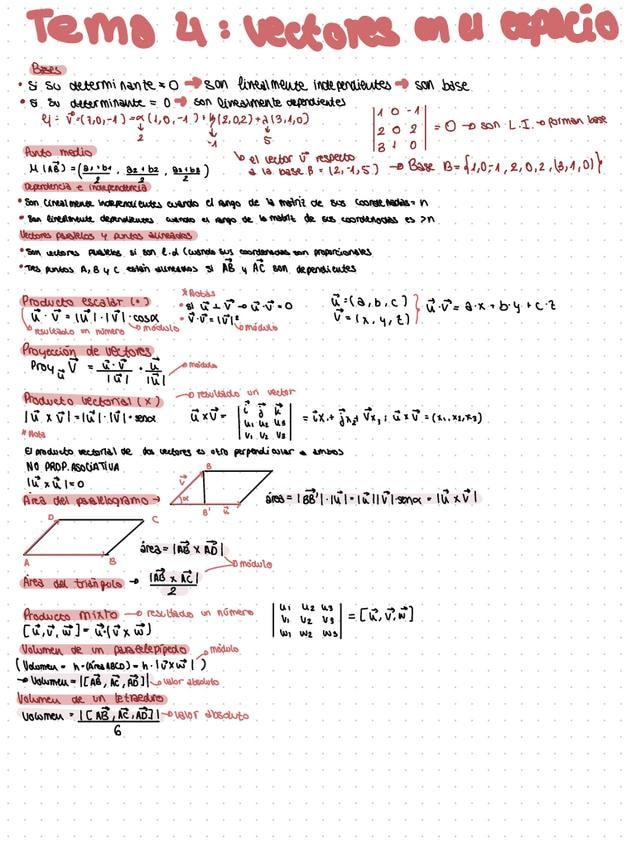 Tema 4: vectores en el espacio
Bases
• Si su determinante ≠ 0 → son linealmente independientes → son base
• Si su determinante = 0 → son linealmente dependientes
Ej: V=(7,0,-1) = α(1,0,-1) + y(2,0,2) + λ(3,1,0)
2 -1 5
|1 0 -1|
|2 0 2| = 0 → son L.I. → forman base
|3 1 0|
Punto medio
M(AB) = (a1+b1/2, a2+b2/2, a3+b3/2)
el vector V respecto
a la base B = (2,-1,5) → Base B = {1,0,-1, 2,0,2, (3,1,0)}
Dependencia e independencia
• Son linealmente independientes cuando el rango de la matriz de sus coordenadas = n
• Son linealmente dependientes cuando el rango de la matriz de sus coordenadas es >n
Vectores paralelos y puntos alineados
• Son vectores paralelos si son l.d (cuando sus coordenadas son proporcionales
• Tres puntos A, B y C están alineados si AB y AC son dependientes
Producto escalar (•)
u · v = |u| · |v| · cosα
resultado un número módulo
*Notas
• si u ⊥ v → u · v = 0
• v · v = |v|²
módulo
u = (a,b,c)
v = (x,y,z) } u · v = a·x + b·y + c·z
Proyección de vectores
Proy u v = u · v / |u| · u / |u|
módulo
Producto vectorial (x) → resultado un vector
|u x v| = |u| · |v| · senα
u x v = |i j k|
|u1 u2 u3|
|v1 v2 v3| = ix1 + jx2 + Vx3; u x v = (x1, x2, x3)
*Nota
El producto vectorial de dos vectores es otro perpendicular a ambos
NO PROP. ASOCIATIVA
|u x u| = 0
Área del paralelogramo →
B
v
α
B' u
área = |BB'| · |u| = |u| |v| · senα = |u x v|
D C
A B
área = |AB x AD|
módulo
Área del triángulo → |AB x AC| / 2
Producto mixto → resultado un número
[u, v, w] = u · (v x w)
|u1 u2 u3|
|v1 v2 v3| = [u, v, w]
|w1 w2 w3|
Volumen de un paralelepípedo
módulo
(Volumen = h · (área ABCD) = h · |v x w|)
→ Volumen = |[AB, AC, AD]| → valor absoluto
Volumen de un tetraedro
Volumen = |[AB, AC, AD]| / 6 → valor absoluto